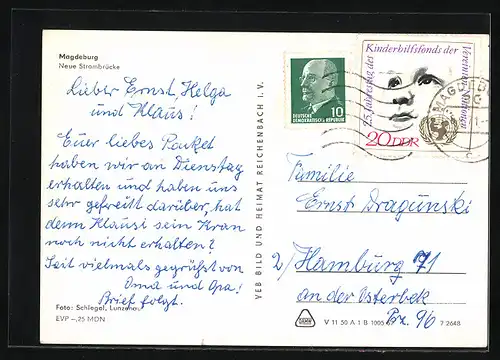 Magdeburg
Neue Strombrücke
Lieber Ernst, Helga
und Klaus!
Euer liebes Packet
haben wir am Dienstag
erhalten und haben uns
sehr gefreut darüber, hat
denn Klausi sein Kran
noch nicht erhalten?
Seit vielmals gegrüßt von
Oma und Opa!
Brief folgt.
Foto: Schlegel, Lunzenau
EVP –,25 MDN
VEB BILD UND HEIMAT REICHENBACH i. V.
10
DEUTSCHE
DEMOKRATISCHE REPUBLIK
25. Jahrestag des Kinderhilfsfonds der Vereinten Nationen
20 DDR
MAGDEBURG
Familie
Ernst Dragunski
2/ Hamburg 71
an der Osterbek
96
V 11 50 A 1 B 1005
7 2648